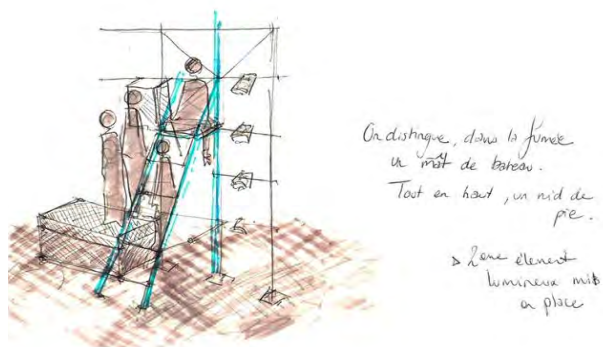 On distingue, dans la fumée
un mât de bateau.
Tout en haut, un nid de
pie.
▷ 2ème élément
lumineux mis
en place